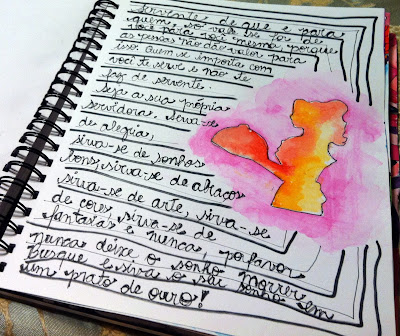 Servente de que e para
quem só vale se for de
você para você mesma porque
as pessoas não dão valor para
isso. Quem se importa com
você te serve e não te
faz de servente.
Seja a sua própria
servidora. Sirva-se
de alegria,
sirva-se de sonhos
bons, sirva-se de abraços
sirva-se de arte, sirva-se
de cores, sirva-se de
fantasias e nunca, por favor
nunca deixe o sonho morrer
Busque e sirva o seu sonho em
um prato de ouro!